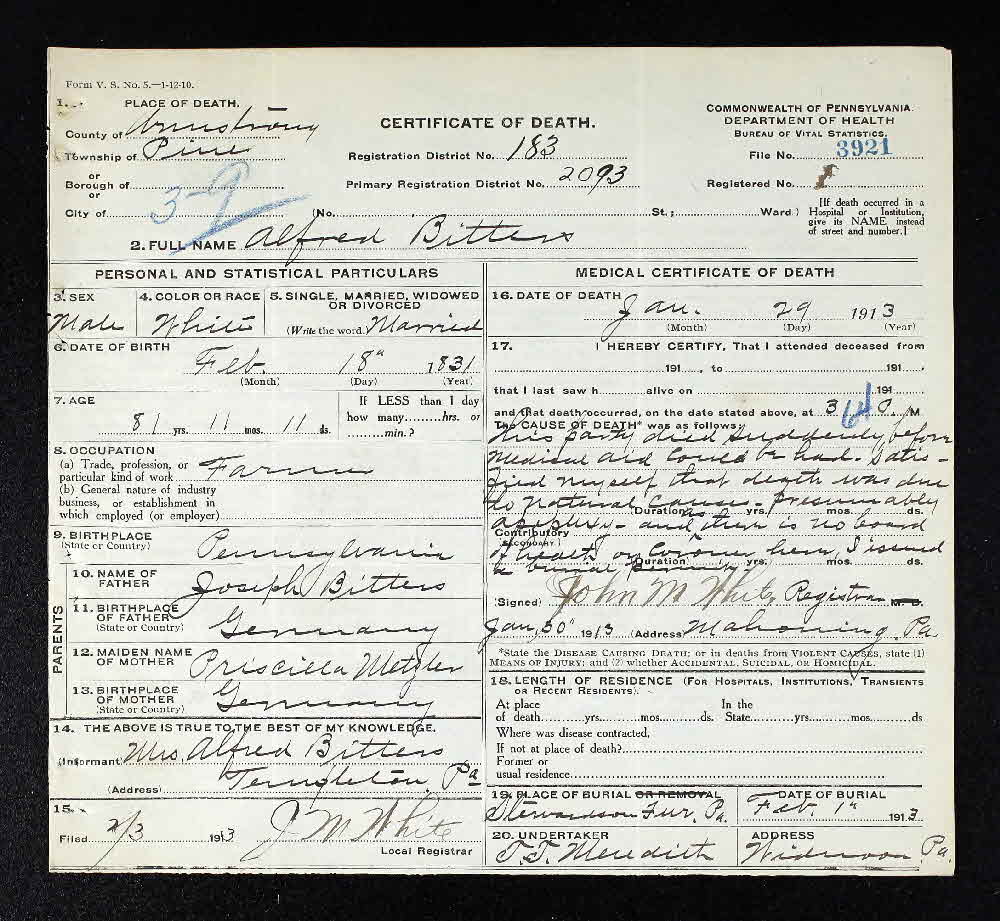 Form V. S. No. 5.—1-12-10.
1. PLACE OF DEATH.
County of Armstrong
Township of Pine
or
Borough of
or
City of
3-9
CERTIFICATE OF DEATH.
Registration District No. 183
Primary Registration District No. 2093
(No. , St.; Ward)
COMMONWEALTH OF PENNSYLVANIA.
DEPARTMENT OF HEALTH
BUREAU OF VITAL STATISTICS.
File No. 3921
Registered No. 1
[If death occurred in a Hospital or Institution, give its NAME instead of street and number.]
2. FULL NAME Alfred Bitters
PERSONAL AND STATISTICAL PARTICULARS
3. SEX
Male
4. COLOR OR RACE
White
5. SINGLE, MARRIED, WIDOWED OR DIVORCED
(Write the word.) Married
6. DATE OF BIRTH
Feb. 18" 1831
(Month) (Day) (Year)
7. AGE
81 yrs. 11 mos. 11 ds.
If LESS than 1 day
how many hrs. or
min.?
8. OCCUPATION
(a) Trade, profession, or
particular kind of work Farmer
(b) General nature of industry
business, or establishment in
which employed (or employer)
9. BIRTHPLACE
(State or Country)
Pennsylvania
PARENTS
10. NAME OF FATHER
Joseph Bitters
11. BIRTHPLACE OF FATHER
(State or Country)
Germany
12. MAIDEN NAME OF MOTHER
Priscilla Metzler
13. BIRTHPLACE OF MOTHER
(State or Country)
Germany
14. THE ABOVE IS TRUE TO THE BEST OF MY KNOWLEDGE.
(Informant) Mrs. Alfred Bitters
(Address) Templeton, Pa
15.
Filed 2/3 1913 J M White
Local Registrar
MEDICAL CERTIFICATE OF DEATH
16. DATE OF DEATH
Jan. 29 1913
(Month) (Day) (Year)
17. I HEREBY CERTIFY, That I attended deceased from
191 , to 191
that I last saw h alive on 191
and that death occurred, on the date stated above, at 3 0. M
The CAUSE OF DEATH* was as follows:
This party died suddenly before
medical aid could be had. Satis-
fied myself that death was due
to natural causes - presumably
(Duration) yrs. mos. ds.
apoplexy - and there is no board
Contributory
(SECONDARY)
of health or coroner here, I issued
a burial permit
(Duration) yrs. mos. ds.
(Signed) John M White, Registrar M. D.
Jan, 30" 1913 (Address) Mahoning, Pa
*State the DISEASE CAUSING DEATH; or in deaths from VIOLENT CAUSES, state (1)
MEANS OF INJURY; and (2) whether ACCIDENTAL, SUICIDAL, OR HOMICIDAL.
18. LENGTH OF RESIDENCE (FOR HOSPITALS, INSTITUTIONS, TRANSIENTS
OR RECENT RESIDENTS).
At place In the
of death yrs. mos. ds. State yrs. mos. ds
Where was disease contracted,
If not at place of death?
Former or
usual residence
19. PLACE OF BURIAL OR REMOVAL
Stewardson Fur. Pa.
DATE OF BURIAL
Feb. 1" 1913
20. UNDERTAKER
T. T. Meredith
ADDRESS
Widnoon Pa.